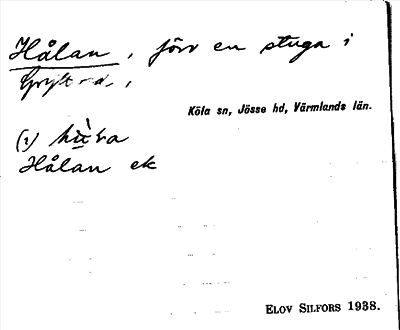 Hålan, förr en stuga i
Köla sn, Jösse hd, Värmlands län.
(i)
Hålan ek
ELOV SILFORS 1938.